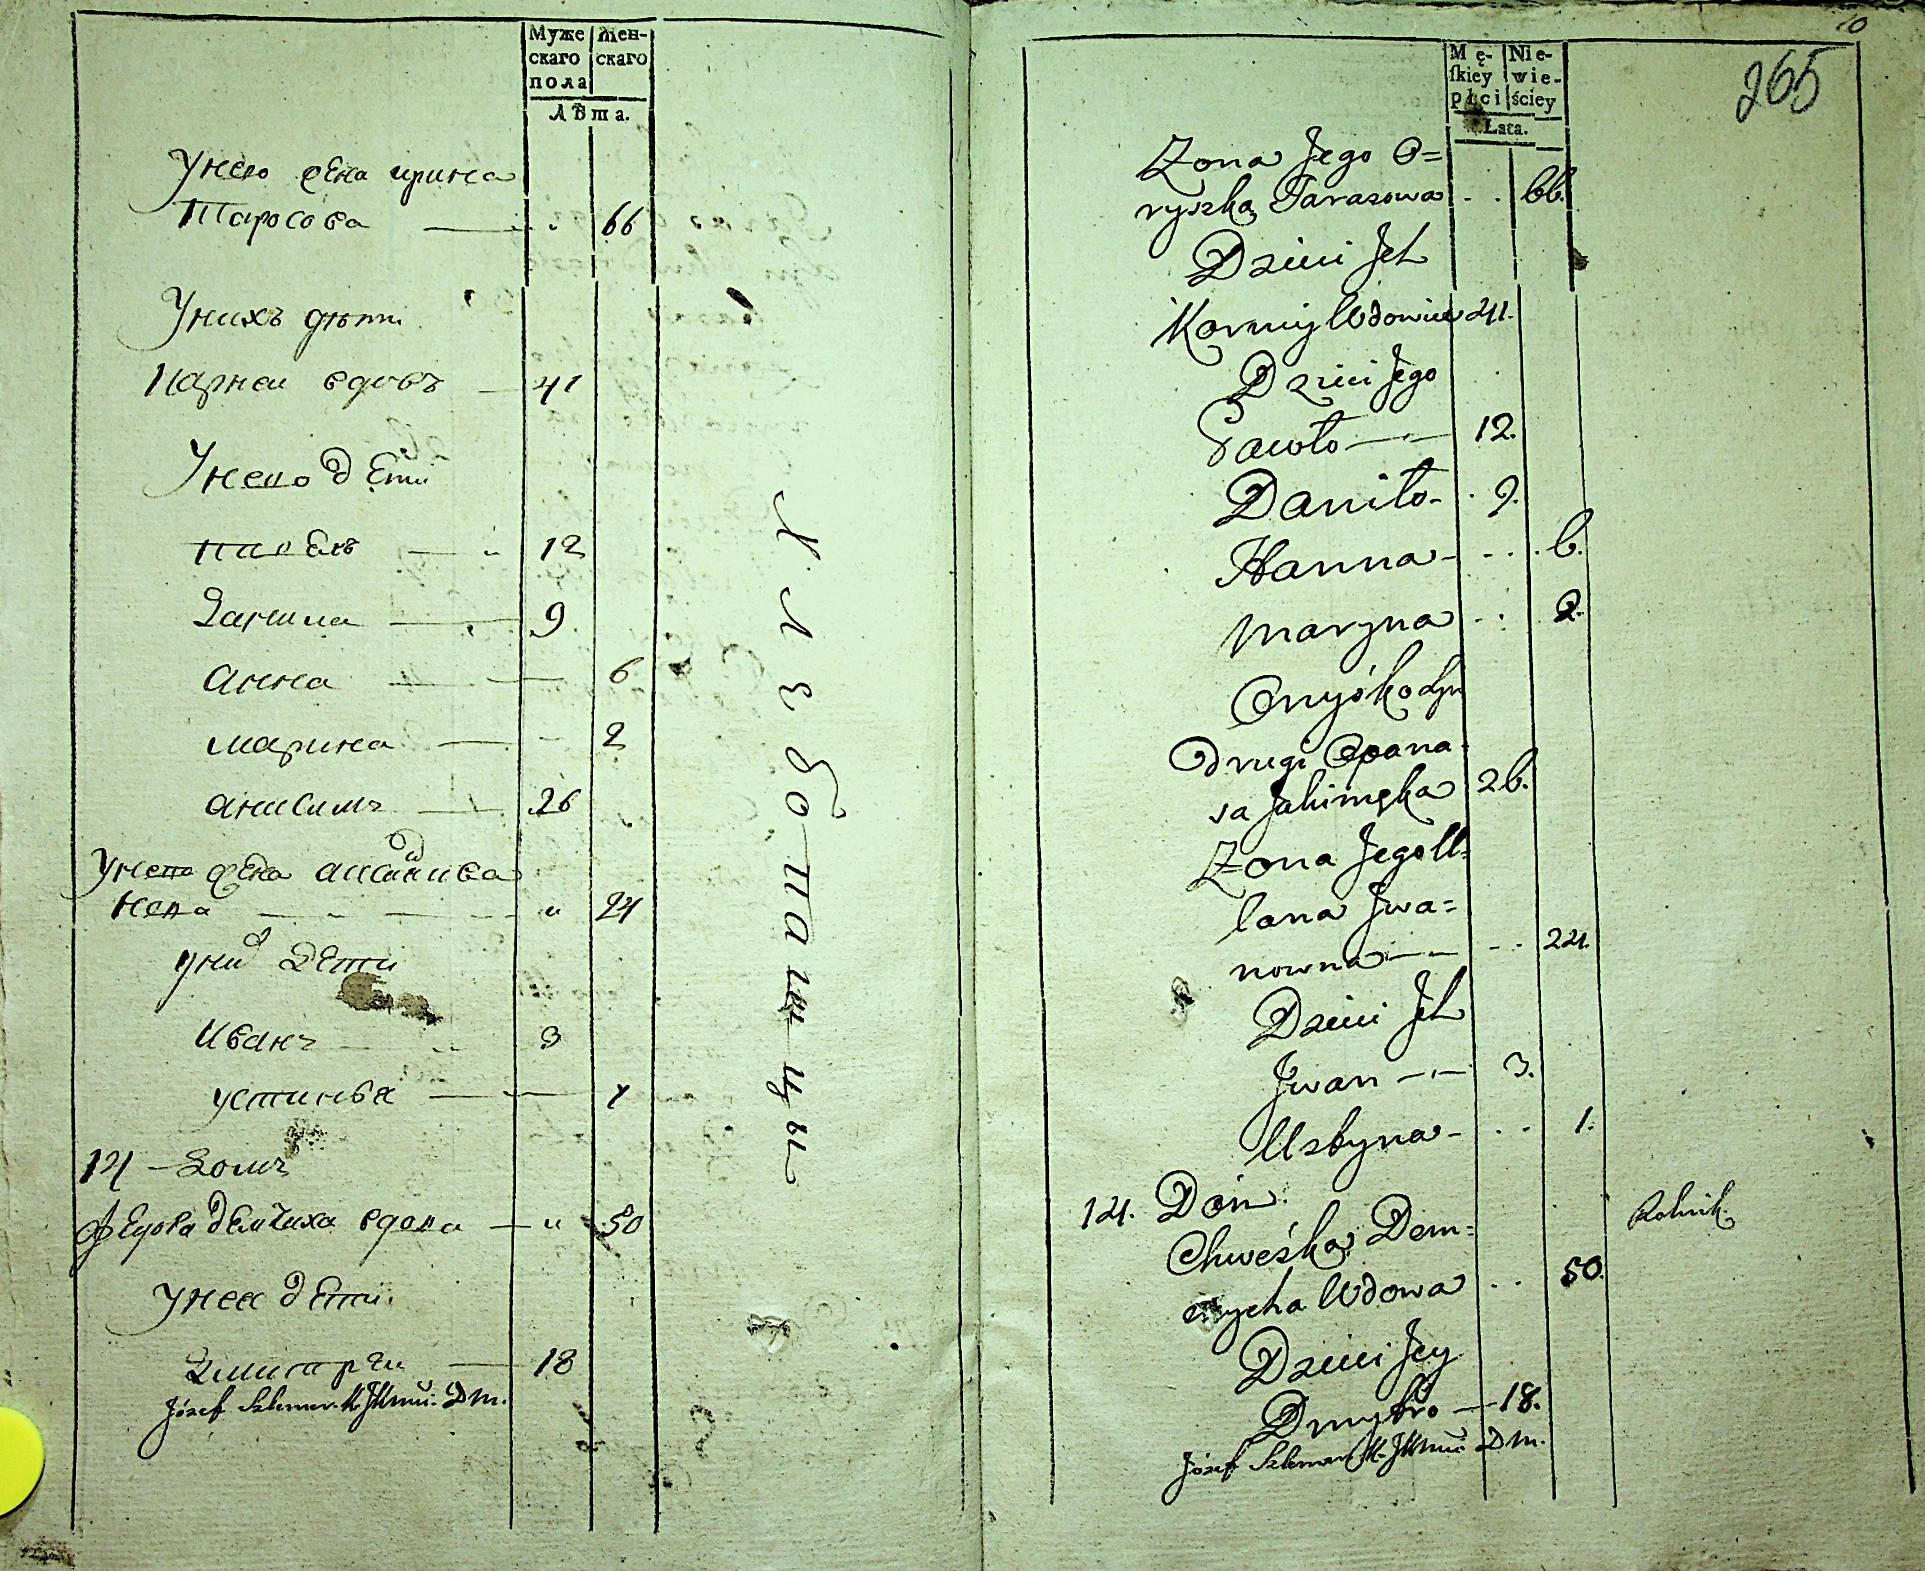 Муже
скаго
пола
Жен-
скаго
Лѣта.
Унего жена ирина
Таросова 66
Унихъ дѣти
Карнеи вдовъ 41
Унего дети
павелъ 12
Данила 9
анна 6
марина 2
анисимъ 26
Унего жена
24
Уних дети
Иванъ 3
устинья 1
14 Домъ
Федора демчиха вдова 50
Унее дети
Дмитреи 18
Józef
Хлебопашцы
10
265
Mę-
skiey
płci
Nie-
wie-
ściey
Lata.
Zona Jego O=
ryszka Tarasowa 66.
Dzieci Jch
Korniy Wdowiec 41.
Dzieci Jego
Pawło 12.
Daniło 9.
Hanna 6.
Maryna 2.
Onyśko Syn
Drugi Opana
sa Jakimęka 26.
Zona Jego Ul=
lana Jwa=
nowna 24.
Dzieci Jch
Jwan 3.
Ustyna 1.
14. Dom.
Chweśka Dem=
czycha Wdowa 50.
Rolnik.
Dzieci Jey
Dmytro 18.
Józef